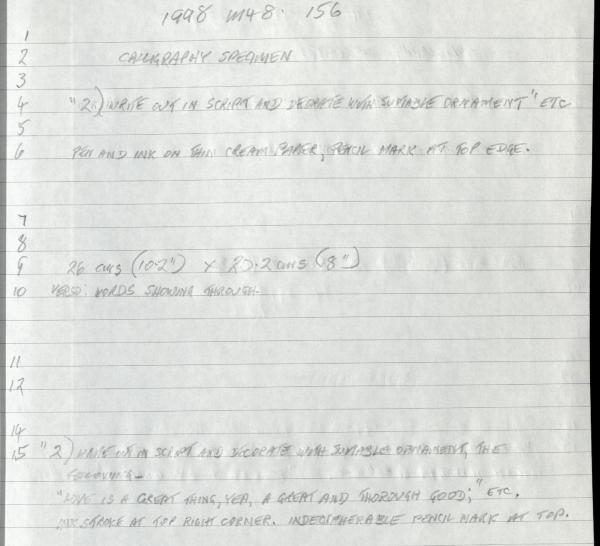 1998 M48. 156
1
2 CALLIGRAPHY SPECIMEN
3
4 "2") WRITE OUT IN SCRIPT AND DECORATE WITH SUITABLE ORNAMENT" ETC
5
6 PEN AND INK ON THIN CREAM PAPER, PENCIL MARK AT TOP EDGE.
7
8
9 26 cms (10.2") x 20.2 cms (8")
10 VERSO: WORDS SHOWING THROUGH.
11
12
14
15 "2) WRITE OUT IN SCRIPT AND DECORATE WITH SUITABLE ORNAMENT, THE
FOLLOWING-
"LOVE IS A GREAT THING, YEA, A GREAT AND THOROUGH GOOD;" ETC.
INK STROKE AT TOP RIGHT CORNER. INDECIPHERABLE PENCIL MARK AT TOP.